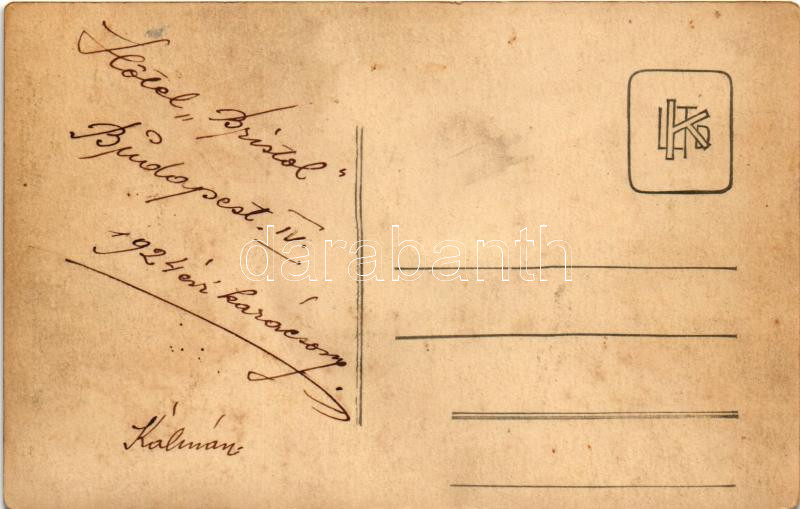 Hôtel „Bristol"
Budapest. IV.
1924 évi karácsony.
Kálmán
darabanth